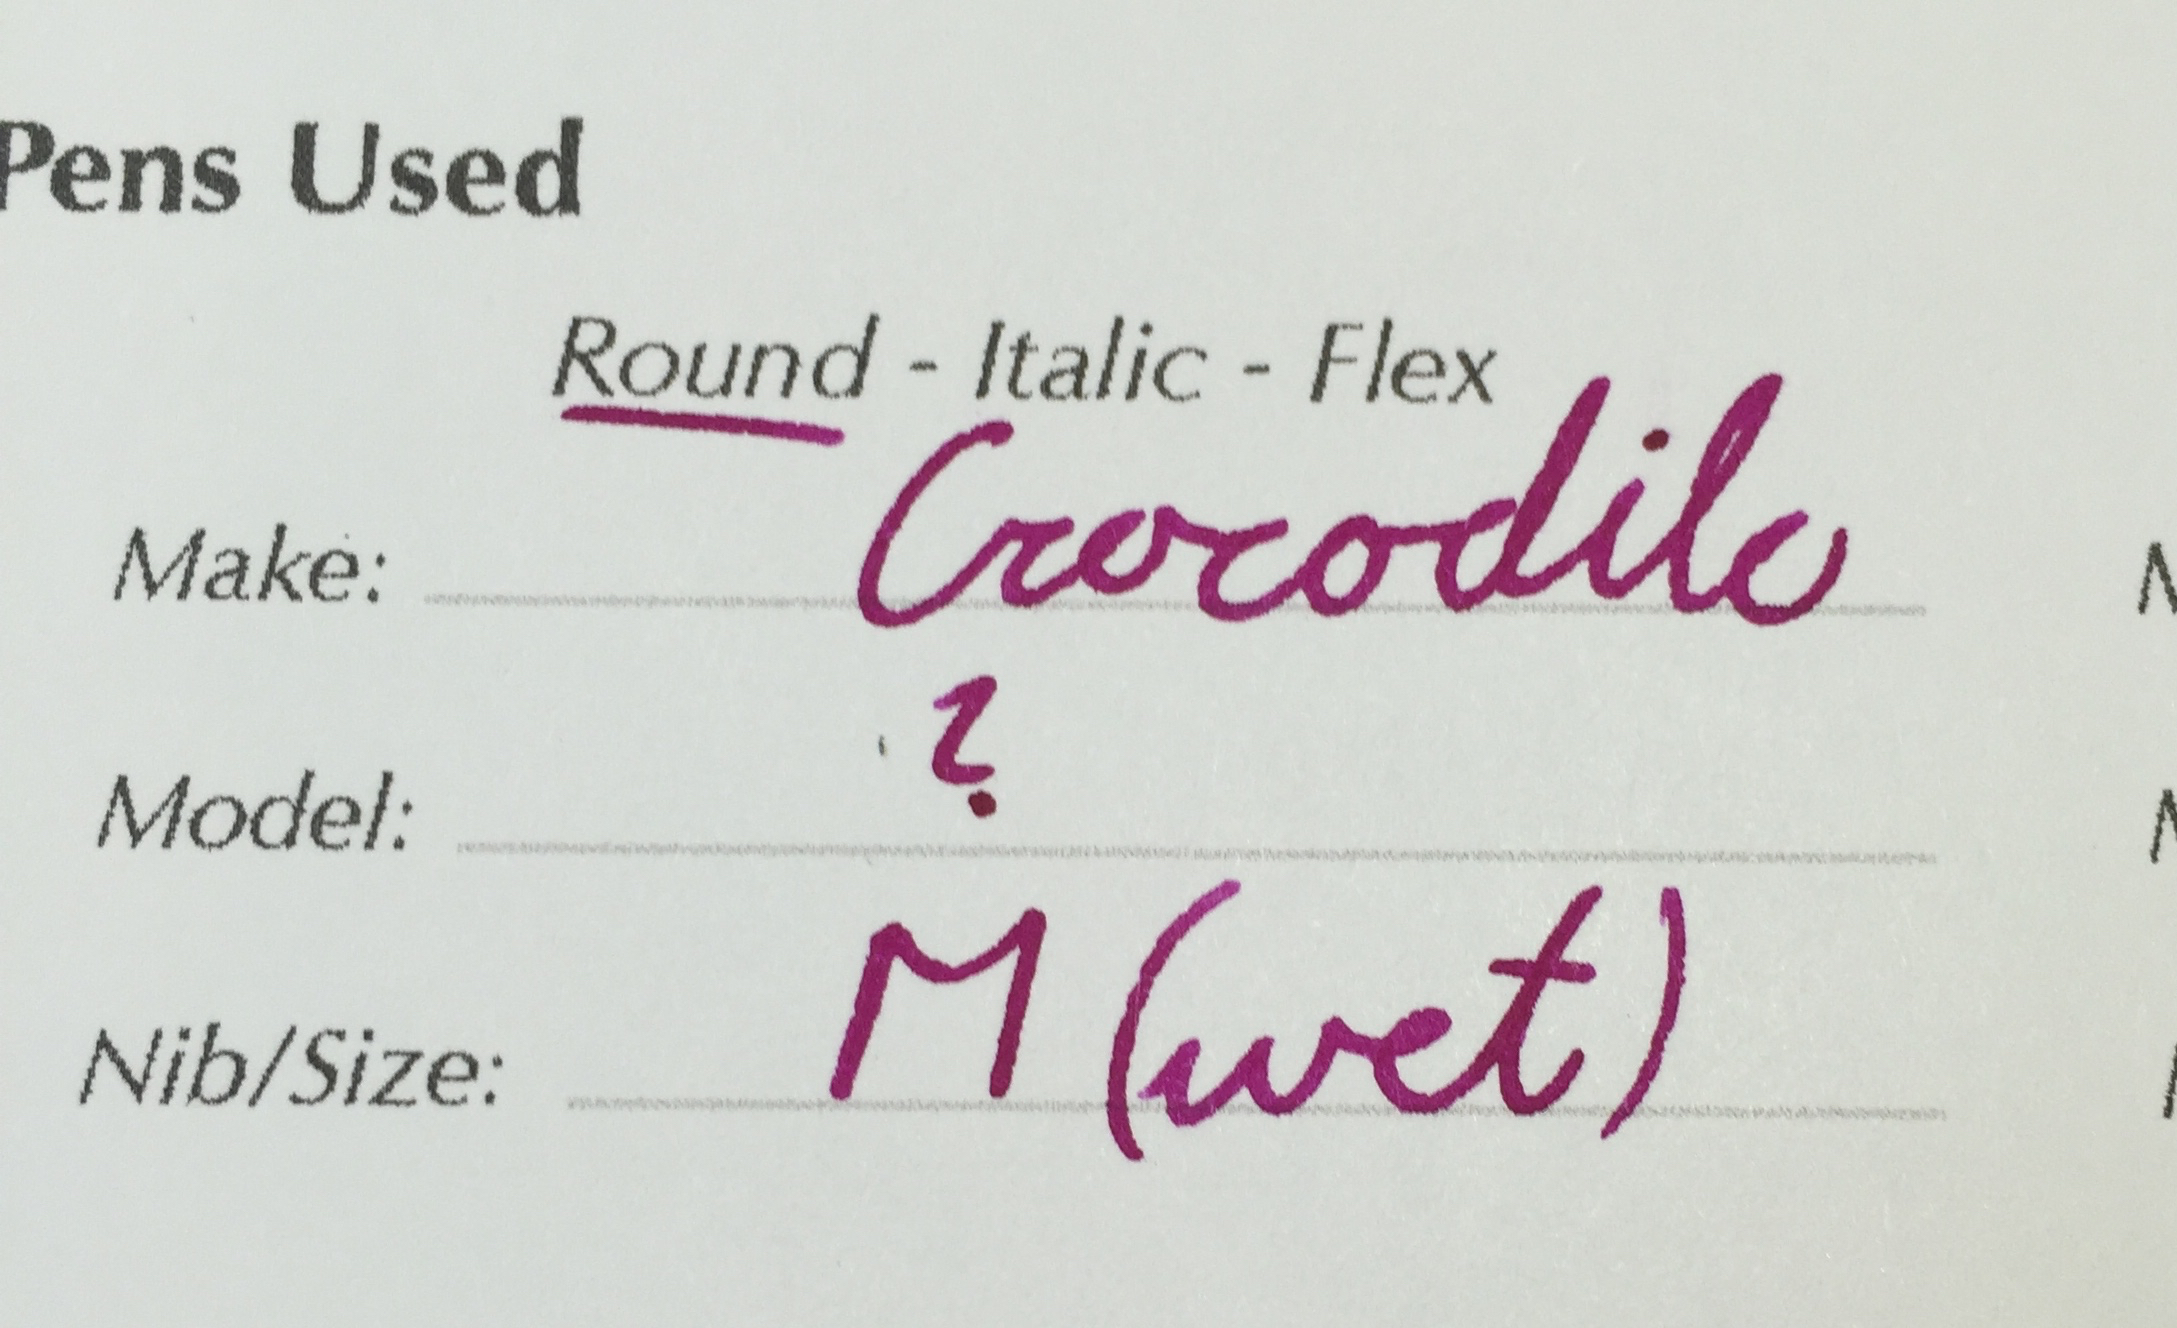 Pens Used
Round - Italic - Flex
Make: Crocodile
Model: ?
Nib/Size: M (wet)